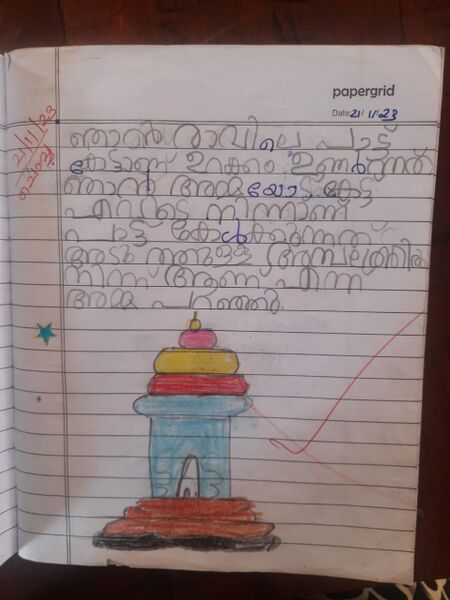 papergrid
Date: 21/11/23
21/11/23
ഞാൻ രാവിലെ പാട്ട്
കേട്ടാണ് ഉറക്കം ഉണർന്നത്
ഞാൻ അമ്മയോട് കേട്ട
എവിടെ നിന്നാണ്
പാട്ട് കേൾക്കുന്നത്
അടുത്തുള്ള അമ്പലത്തിൽ
നിന്ന് ആണ് എന്ന
അമ്മ പറഞ്ഞു.